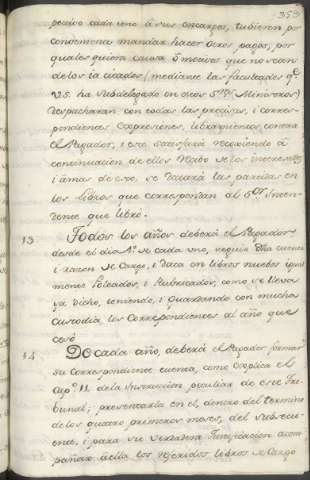 353
pectivo cada uno á sus encargos, tubieren por
conveniente mandar hacer otros pagos, por
qualesquiera causa ó motivos que no sean
de los ia citados (mediante las facultades qe.
V.S. ha subdelegado en otros Sres. Ministros)
despacharan con todas las precisas, i corres-
pondientes expresiones, libramientos contra
el Pagador, i este satisfará recibiendo á
continuacion de ellos Recibo de los interesados
i á mas de este, se tacará la partida en
los libros que correspondan al Sor. Inten-
dente que libró.
13 Todos los años deberá el Pagador
desde el dia 1o. de cada uno, seguir cuenta
i razon de Cargo, i Data en libros nuebos igual
mente foleados, i Rubricados, como se lleva
ya dicho, teniendo, i guardando con mucha
custodia los correspondientes al año que
cesó
14 De cada año, deberá el Pagador formar
su correspondiente cuenta, como explica el
Capo. 11 de la Instruccion peculiar de este Tri-
bunal; presentarla en el, dentro del termino
de los quatro primeros meses, del subsecu-
ente, i para su verdadera Justificacion acom-
pañar á ella los referidos libros de Cargo